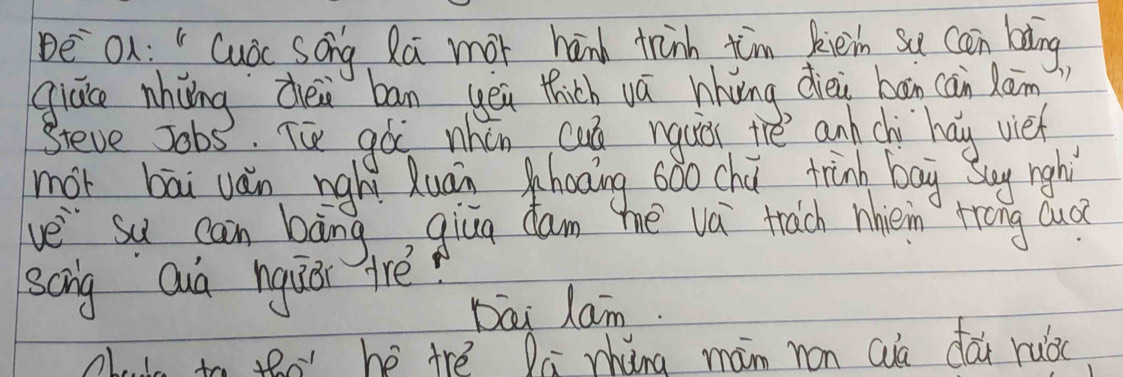 Đề 01: "Cuộc sống là một hành trình tìm kiếm sự cân bằng
giữa những điều bạn yêu thích và những điều bạn cần làm"
Steve Jobs. Từ góc nhìn của người trẻ anh chị hãy viết
một bài văn nghị luận khoảng 600 chữ trình bày suy nghĩ
về sự cân bằng giữa đam mê và trách nhiệm trong cuộc
sống của người trẻ?
Bài làm.
ta thế hệ trẻ là những mầm non của đất nước